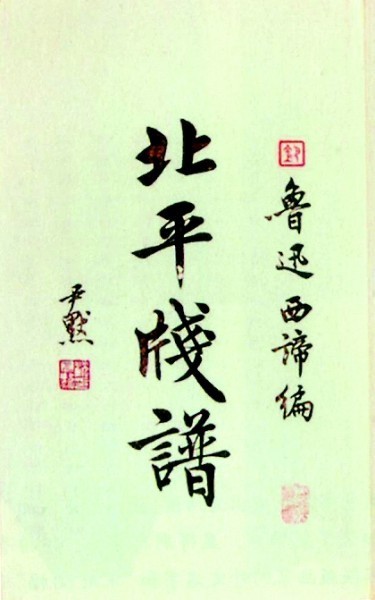 魯迅西諦編
北平牋譜
尹默